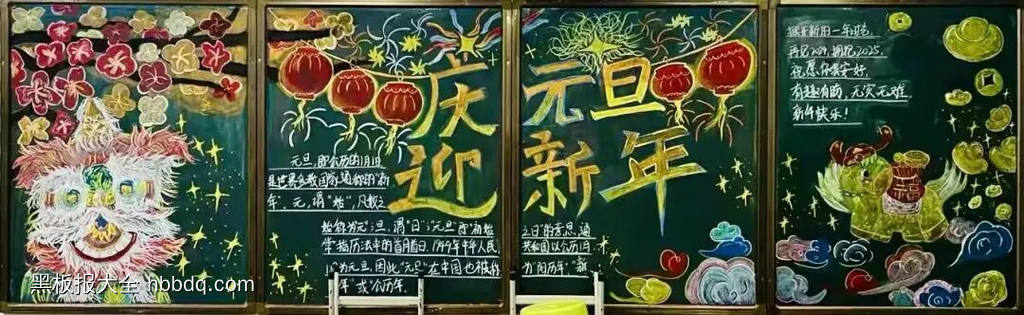 庆元旦
迎新年
元旦，即公历的1月1日
是世界多数国家通称的“新
年”。元，谓“始”，凡数之
始称为“元”；旦，谓“日”；“元旦”即“初始
之日”的意思。通
常指历法中的首月首日。1949年中华人民
共和国以公历1月
1日为元旦，因此“元旦”在中国也被称
为“阳历年”“新
年”或“公历年”
新的一年
再见2024，拥抱2025。
祝愿你我安好，
有趣有盼，无灾无难
新年快乐！
黑板报大全 hbbdq.com